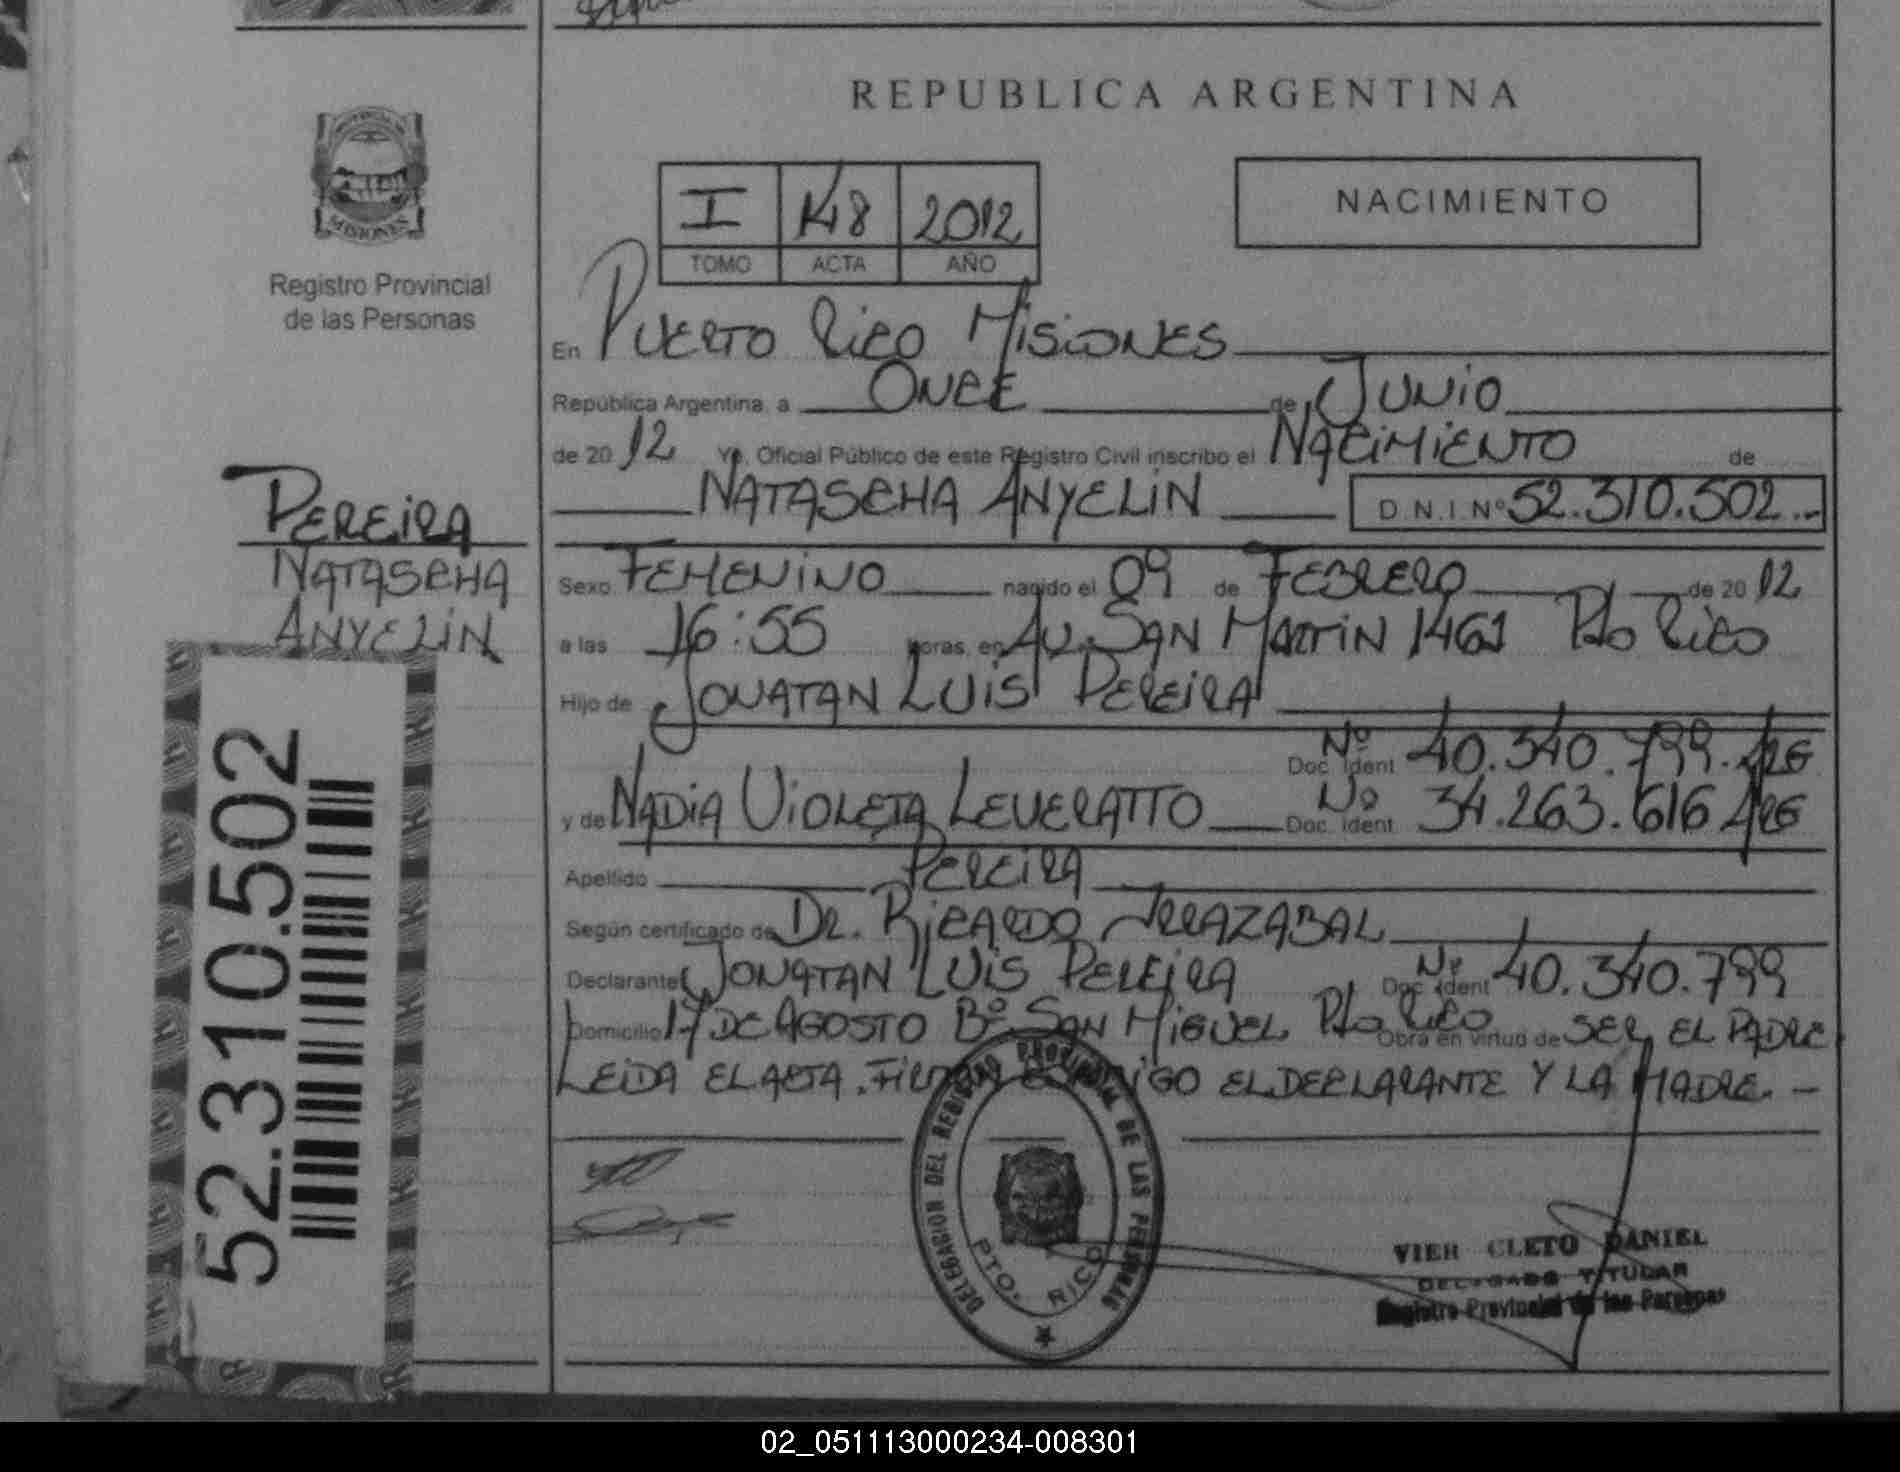 REPUBLICA ARGENTINA
NACIMIENTO
I 148 2012
TOMO ACTA AÑO
MISIONES
Registro Provincial
de las Personas
En PUERTO RICO MISIONES
República Argentina, a ONCE de JUNIO
de 2012 Yo, Oficial Público de este Registro Civil inscribo el NACIMIENTO de
NATASCHA ANYELIN D.N.I. Nº 52.310.502.-
PEREIRA
NATASCHA
ANYELIN
Sexo FEMENINO nacido el 09 de FEBRERO de 2012
a las 16:55 horas, en AV. SAN MARTIN 1461 Pto RICO
Hijo de JONATAN LUIS PEREIRA
Doc. Ident Nº 40.340.799. ARG
y de NADIA VIOLETA LEVERATTO Doc. Ident Nº 34.263.616 ARG
Apellido PEREIRA
Según certificado de DR. RICARDO IRRAZABAL
Declarante JONATAN LUIS PEREIRA Doc. Ident Nº 40.340.799
Domicilio 17 DE AGOSTO Bº SAN MIGUEL Pto RICO Obra en virtud de SER EL PADRE
LEIDA EL ACTA. FIRMAN CONMIGO EL DECLARANTE Y LA MADRE. -
52.310.502
DELEGACION DEL REGISTRO PROVINCIAL DE LAS PERSONAS
PTO. RICO
VIER CLETO DANIEL
DELEGADO TITULAR
Registro Provincial de las Personas
02_051113000234-008301